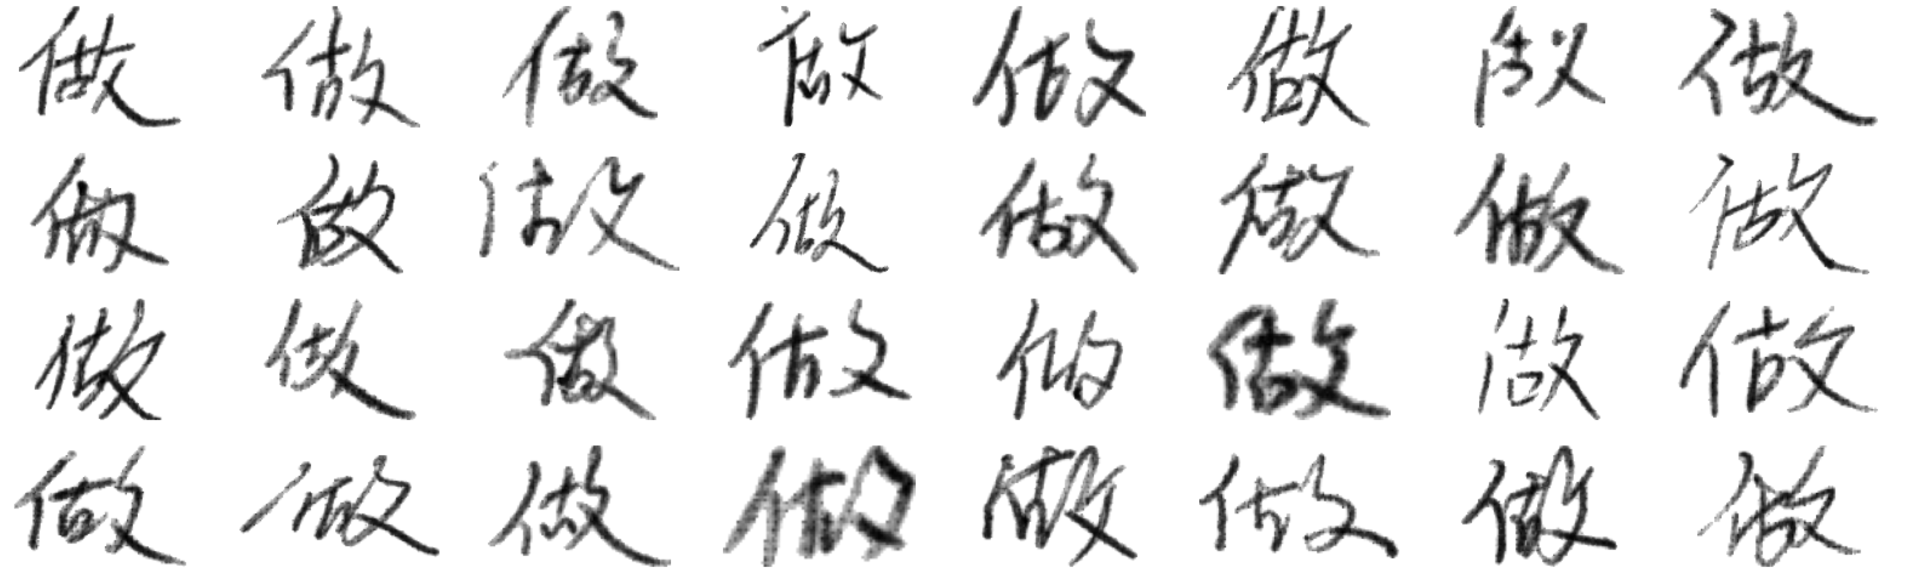 做 做 做 做 做 做 做 做
做 做 做 做 做 做 做 做
做 做 做 做 做 做 做 做
做 做 做 做 做 做 做 做